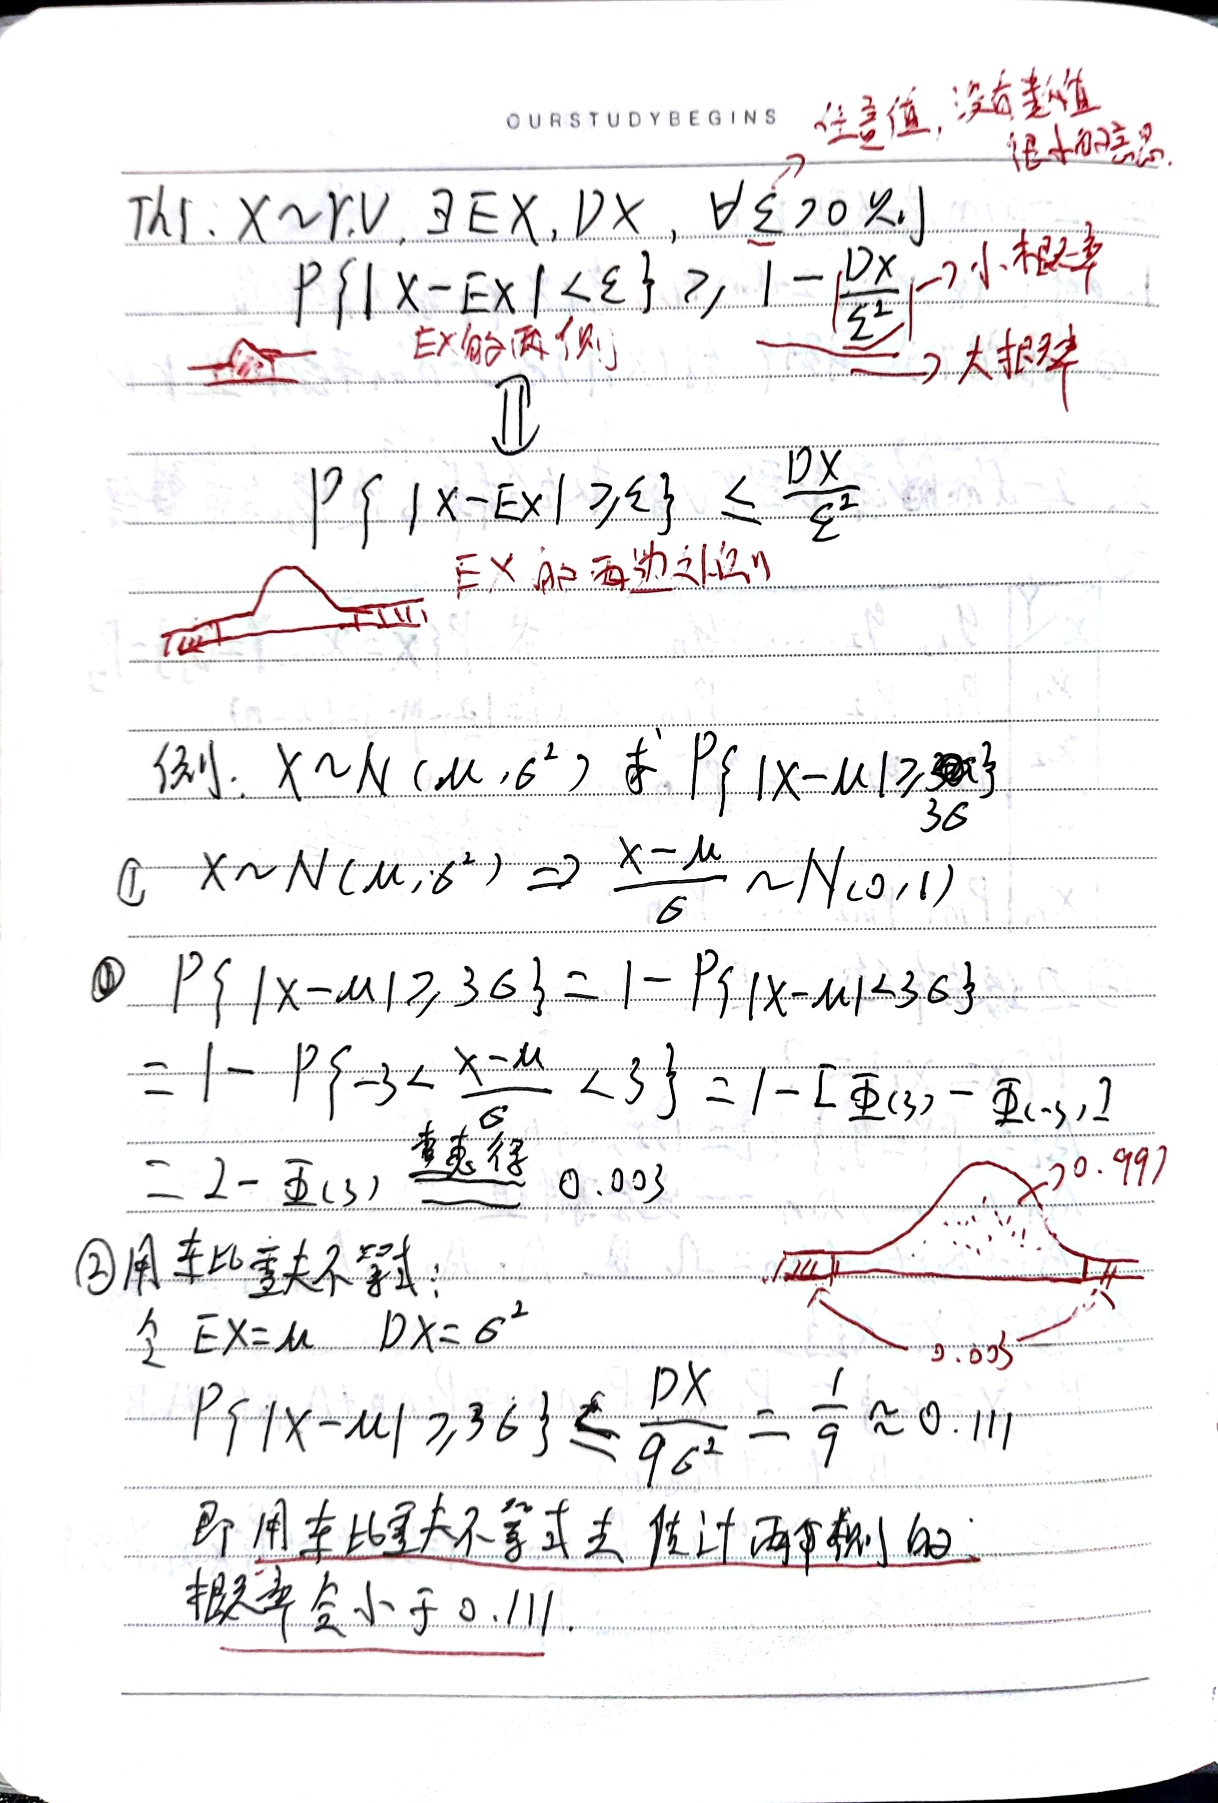 OURSTUDYBEGINS
任意值，没有数值
很小的意思.
Th1. X~r.v. ∃EX, DX, ∀ε>0 则
P{|X-EX|<ε} ≥ 1 - DX/ε² → 小概率
EX的两侧
→ 大概率
⇕
P{|X-EX|≥ε} ≤ DX/ε²
EX的两边之外侧
例. X~N(μ,σ²) 求 P{|X-μ|≥3σ}
① X~N(μ,σ²) ⇒ (X-μ)/σ ~N(0,1)
① P{|X-μ|≥3σ} = 1 - P{|X-μ|<3σ}
= 1 - P{-3 < (X-μ)/σ < 3} = 1 - [Φ(3) - Φ(-3)]
= 2 - Φ(3) 查表得 0.003
0.997
② 用车比雪夫不等式:
令 EX=μ DX=σ²
0.003
P{|X-μ|≥3σ} ≤ DX/9σ² = 1/9 ≈ 0.111
即用车比雪夫不等式去估计两个侧的
概率会小于0.111.